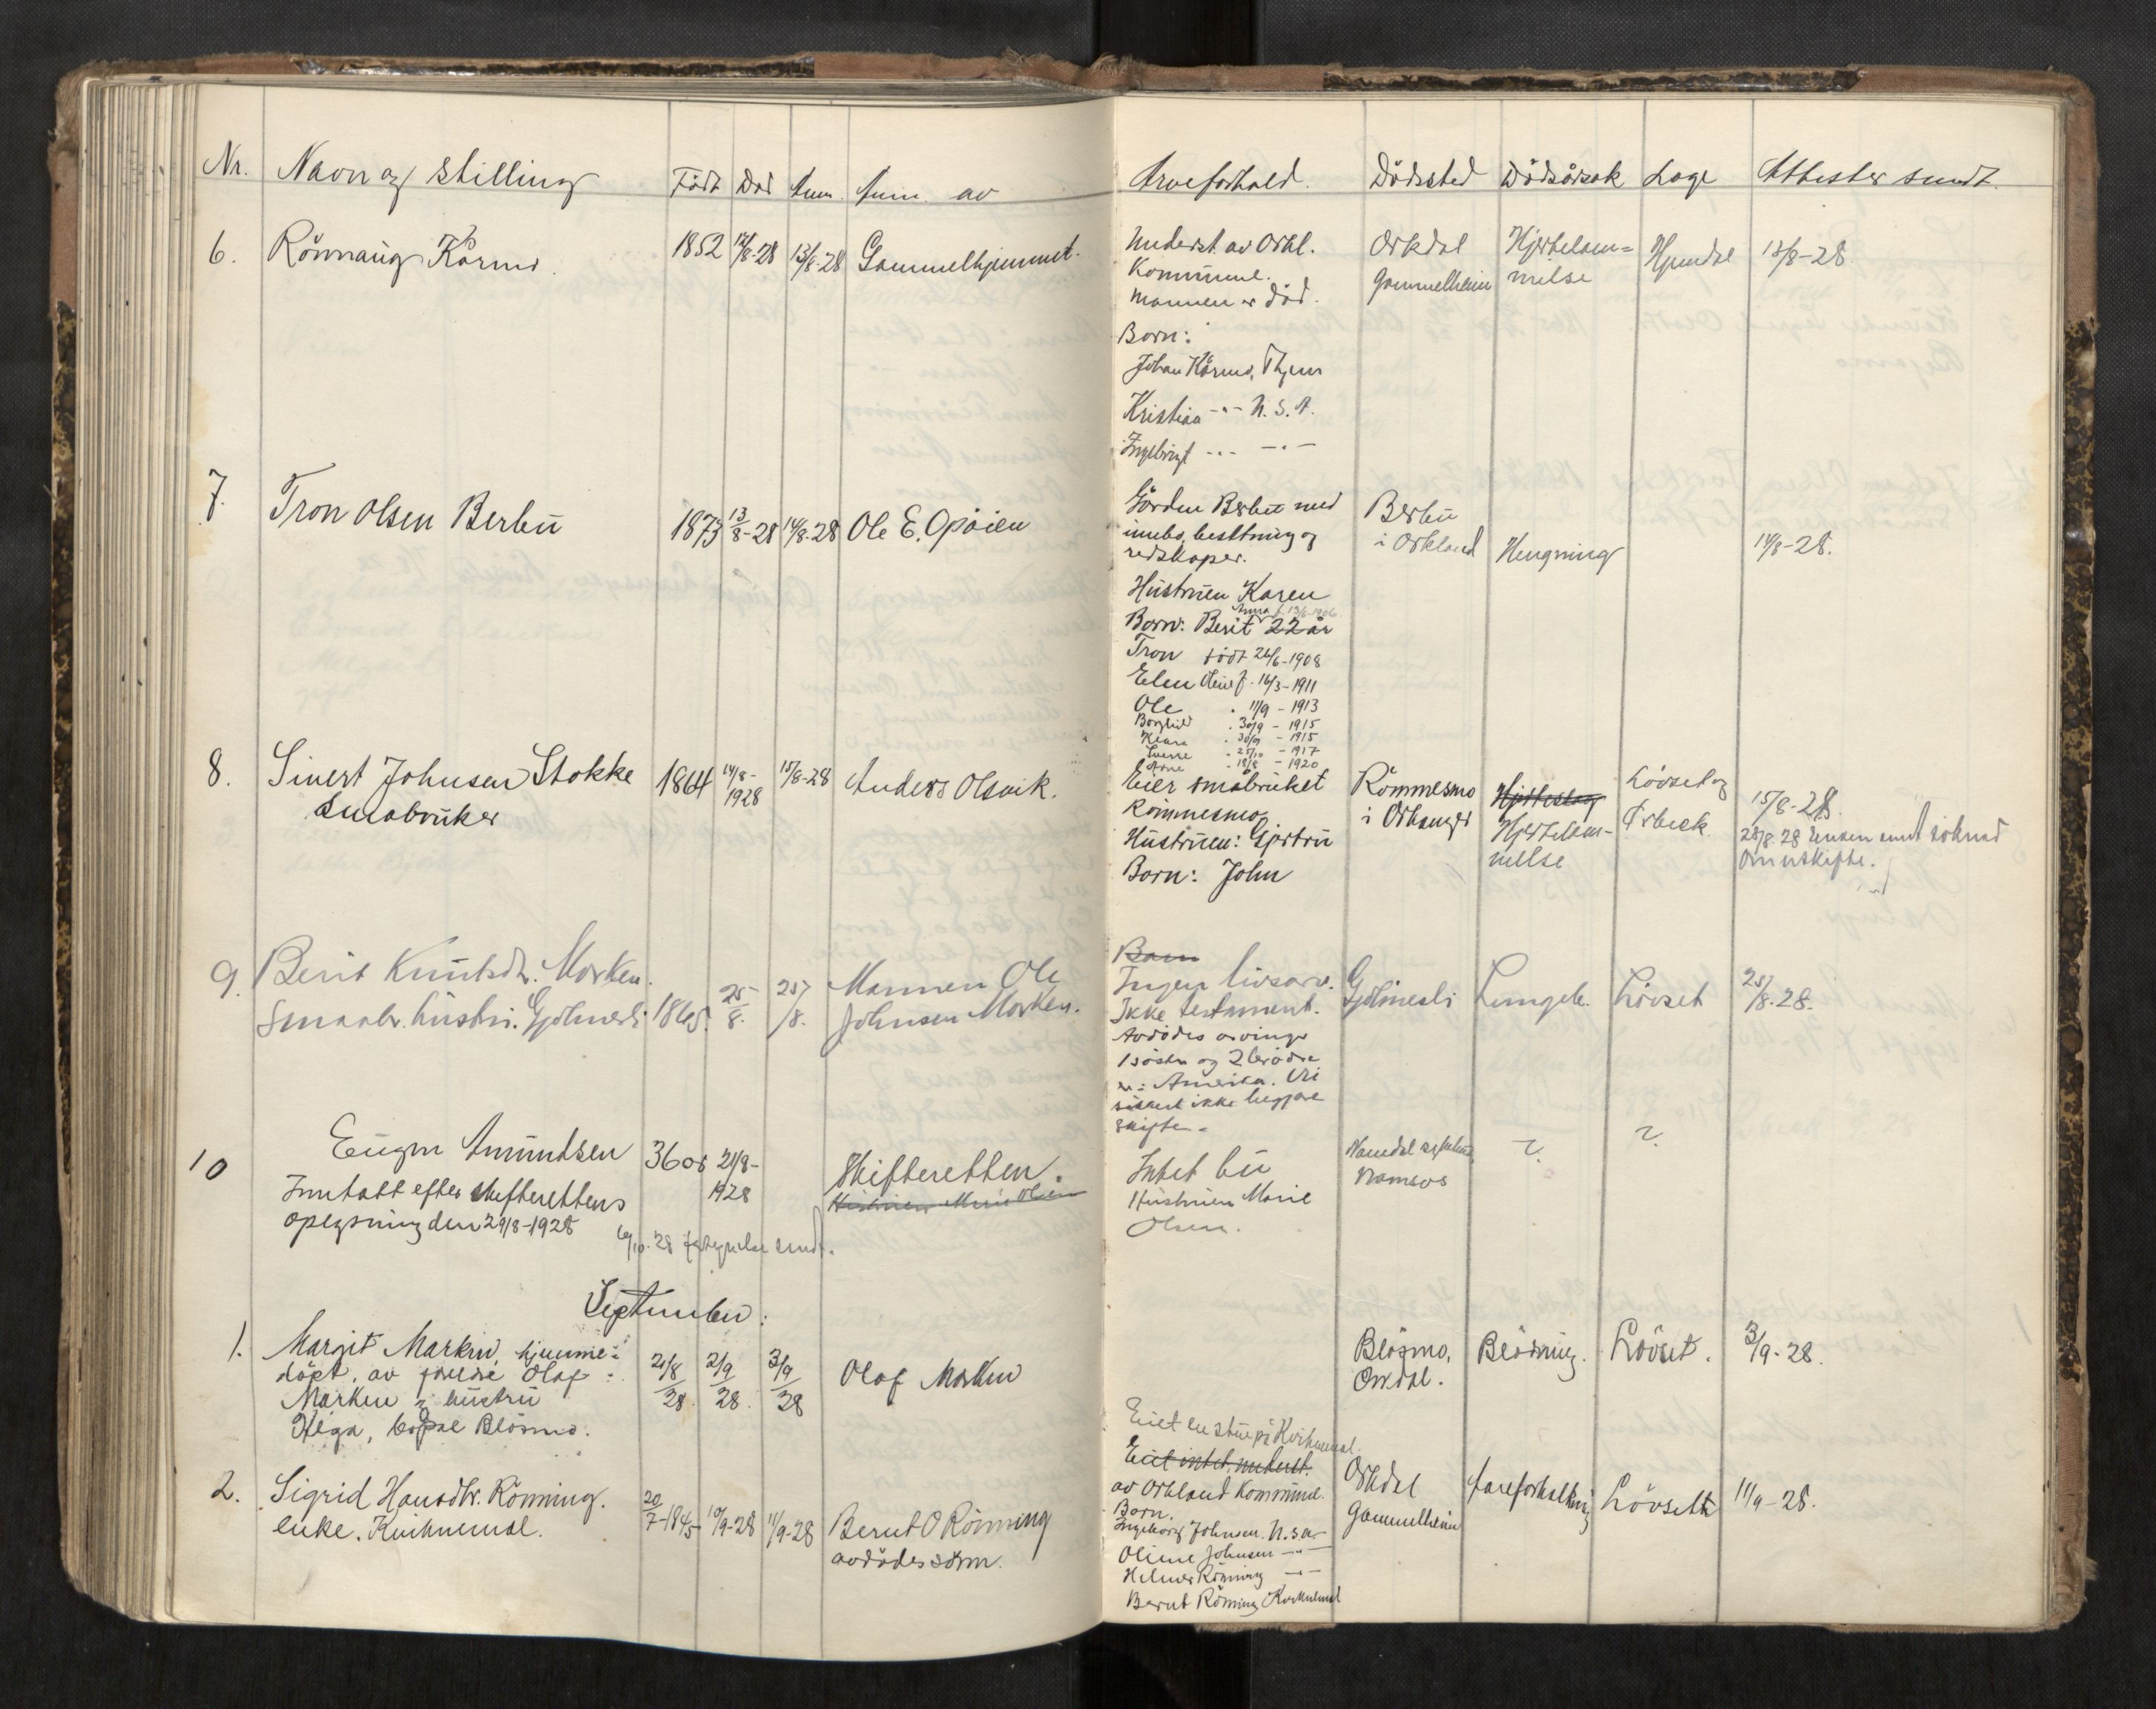 Nr. Navn og stilling Födt Död Anm. Anm. av Arveforhold. Dödssted Dödsårsak Lage Attester sendt.
6. Rönnaug Kårmo. 1852 12/8-28 13/8-28 Gammelhjemmet. Underst. av Orkl. Orkdal Hjertelam= Hjendal 13/8-28.
Kommune. Gammelheim melse
Mannen er död.
Born:
Johan Kårmo, Thjem
Kristian -"- U.S.A.
Ingebrigt -"- -"-
7. Tron Olsen Berbu 1873 13/8-28 14/8-28 Ole E. Opöien Gården Berbu med Berbu
innbo, besetning og i Orkland Hengning 14/8-28.
redskaper.
Hustruen Karen
Anna f. 13/6-1906
Born: Berit 22 år
Tron födt 26/6-1908
Elen Oline f. 16/3-1911
Ole " 11/9 - 1913
Borghild " 30/9 - 1915
Klara " 30/9 - 1915
Sverre " 25/10 - 1917
Arne " 18/8 - 1920
8. Sivert Johnsen Stokke 1864 14/8-1928 15/8-28 Anders Olsvik. Eier småbruket Römmesmo Hjerteslag Lövset og 15/8-28.
Småbruker Römmesmo i Orkanger Hjertelam- Örbeck. 28/8-28 Enken sendt söknad
Hustruen: Gjertru melse om uskifte.
Born: John
9. Berit Knutsdtr. Morken. Barn
Smaabr. hustru. Gjölmesli 1865. 25/8. 25/8. Mannen Ole Johnsen Morken. Ingen livsarv. Gjölmesli Lungeb. Lövset 25/8-28.
Ikke testament.
Avdödes arvinger
1 söster og 2 brödre
er i Amerika. Vil
sikkert ikke begjære
skifte.
10 Eugen Amundsen 36 år 21/8-1928 Skifteretten. Intet bu Namdal sykehus, ? ?
Inntatt efter skifterettens Hustruen Marie Olsen Hustruen Marie Namsos
opgysning den 29/8-1928 Olsen.
6/10-28 sendt.
September:
1. Margit Marken, hjemme= 21/8/28. 2/9/28. 3/9/28 Olaf Marken Blåsmo, Blödning. Lövset. 3/9-28.
döpt, av foreldre Olaf Orkdal.
Marken & hustru
Helga, bopæl Blåsmo.
Eiet en stue på Kviknemel.
2. Sigrid Hansdtr. Rönning. 20/7-1845 10/9-28 11/9-28 Bernt O Rönning Eiet intet, underst. Orkdal Aareforkalkning Lövseth 11/9-28.
enke. Kvikнemel. avdödes sönn. av Orkland Kommune. Gammelheim
Born.
Ingeborg Johnsen. U.S.A.
Oline Johnsen -"-
Helmer Rönning -"-
Bernt Rönning Kvikнemel